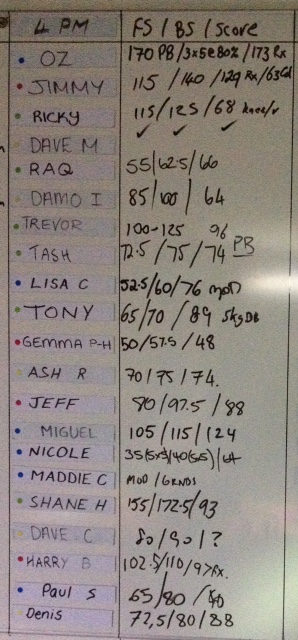 4 PM FS / BS / Score
OZ 170 PB / 3x5e80% / 173 Rx
JIMMY 115 / 140 / 129 Rx/63
RICKY 115 / 125 / 68
DAVE M ✓ ✓ ✓
RAQ 55/62.5/66
DAMO I 85/100/ 64
TREVOR 100-125 96
TASH 72.5 / 75 / 74 PB
LISA C 52.5/60/76 mod
TONY 65/70 / 89 5kg DB
GEMMA P-H 50/57.5/48
ASH R 70/75/74.
JEFF 90/97.5 / 88
MIGUEL 105 / 115 / 124
NICOLE 35(5x5)/40(5x5)/64
MADDIE C MOD / GRNDS
SHANE H 155/172.5/93
DAVE C 80/90/?
HARRY B 102.5/110/97Rx.
Paul S 65/80 /
Denis 72,5/80/88